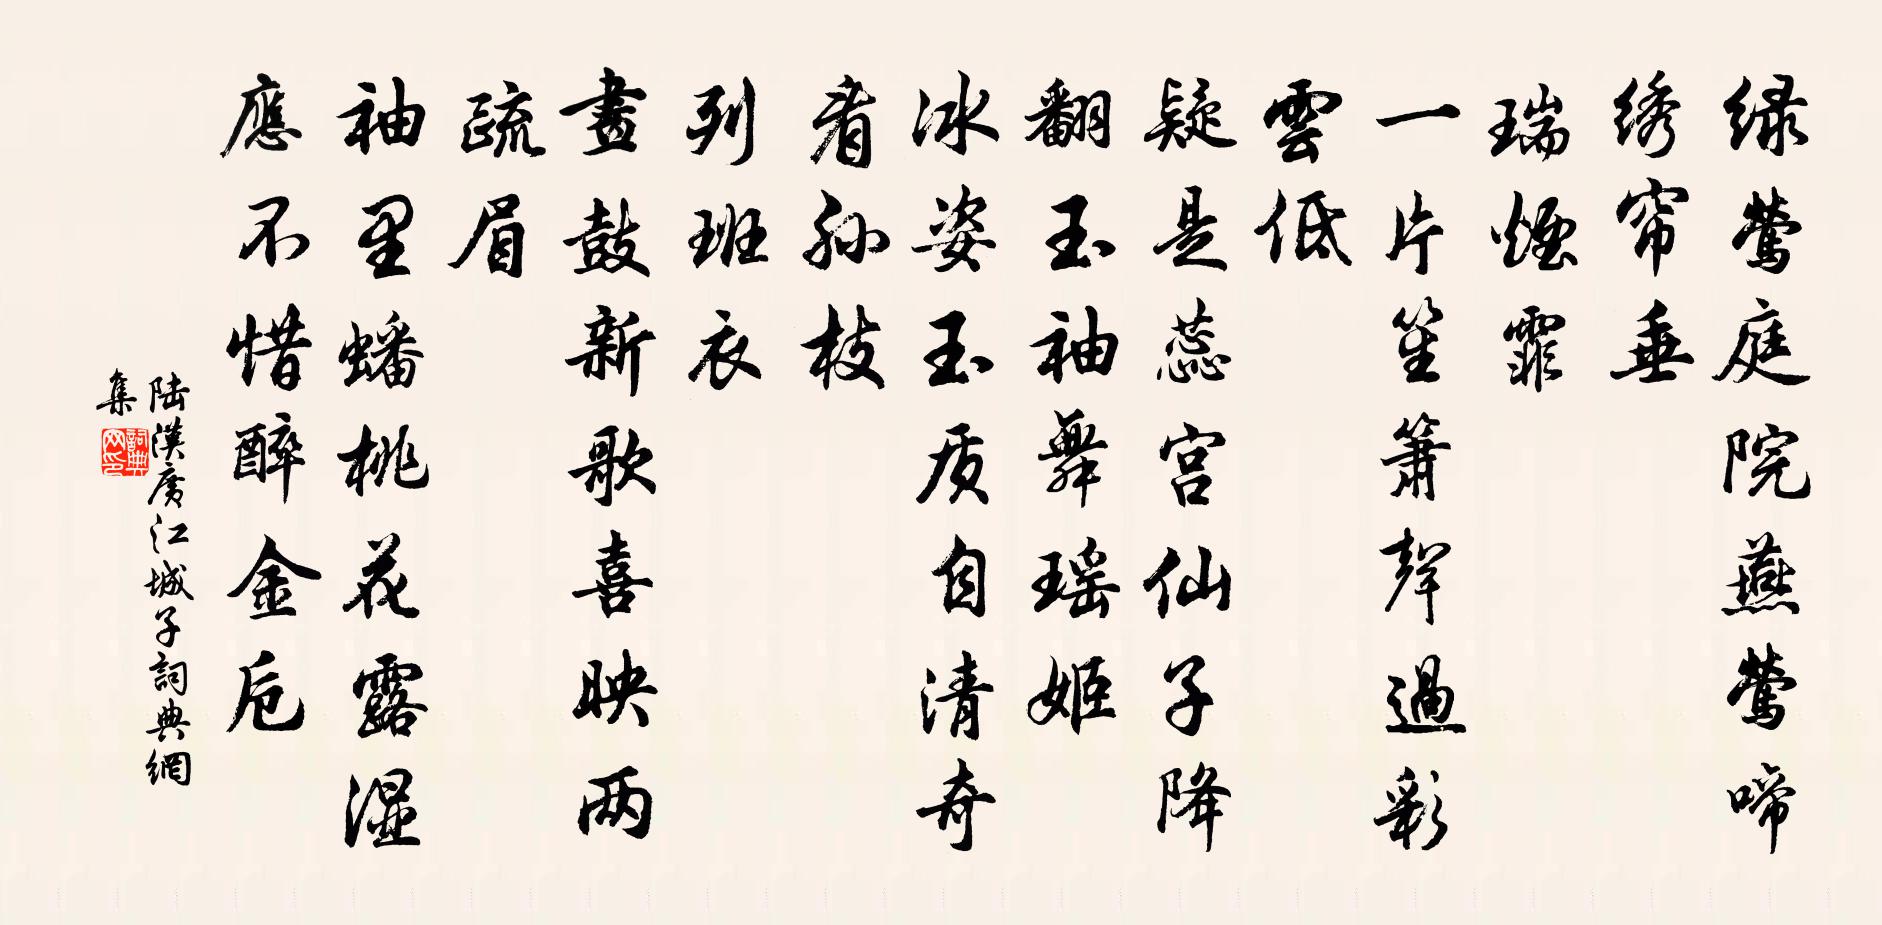 绿莺庭院燕莺啼
绣帘垂
瑞烟霏
一片笙箫聲過彩
雲低
疑是蕊宫仙子降
翻玉袖舞瑶姬
冰姿玉质自清奇
看孙枝
列班衣
畫鼓新歌喜映两
疏眉
袖里蟠桃花露湿
應不惜醉金卮
陆漢广江城子詞典網
集
詞典
网印